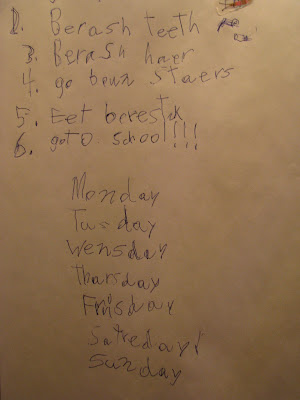 2. Berash teeth
3. Berash haer
4. go boun staers
5. Eet
6. goto school!!!
Monday
Tusday
Wensday
Thursday
Friisday
Satreday!
Sunday